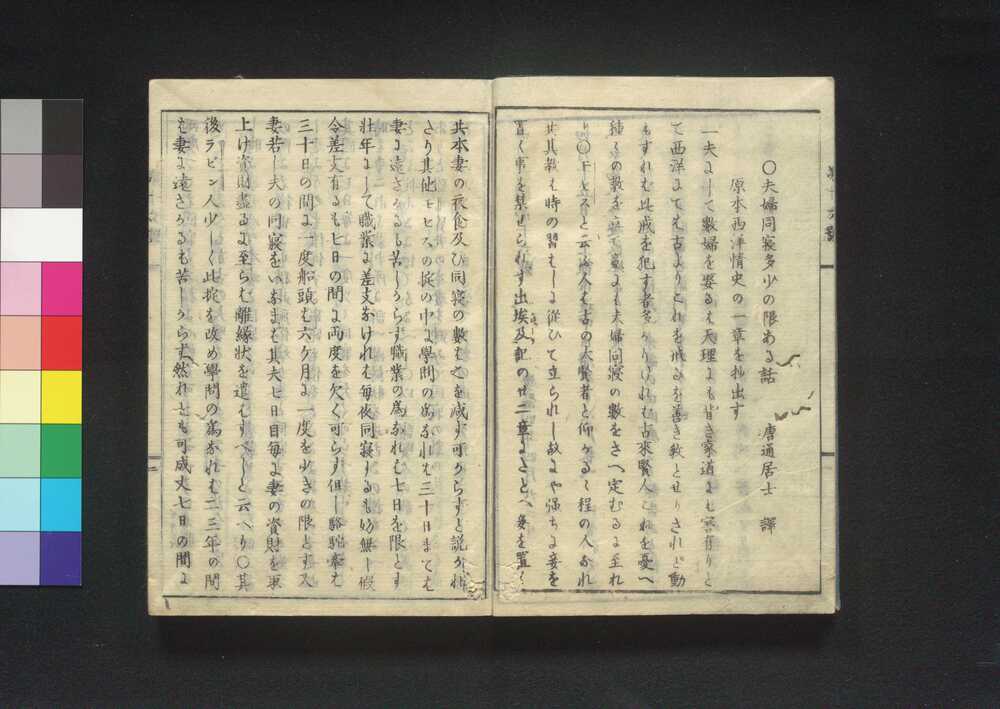 ○夫婦同寝多少の限ある話　唐通居士　譯
原本西洋情史の一章を抄出す
一夫にして數婦を娶るも天理にも背き家道にも害有りと
て西洋にても古よりこれを戒るを善き教とせりされど動
もすれむ此戒を犯す者多かりけれむ古來賢人これを憂へ
種〻の教を立て夫婦同寝の數をさへ定むるに至れ
り○モヒスと云る人も古の大賢者と仰かるゝ程の人なれ
共其教も時の習むしに從ひて立られし故にや強ちに妾を
置く事を禁せられす出埃及記の廿二章にたとへ妾を置く
共本妻の衣食及ひ同寝の數む之を减す可からすと説かれ
たり其他モヒスの掟の中に學問の爲なれむ三十日まてむ
妻に遠さかるも苦しからす職業の爲なれむ七日を限とす
壮年にして職業に差支なけれむ毎夜同寝するも妨無し假
令差支有るも七日の間に両度を欠く可らす但し駱駝牽む
三十日の間に一度船頭む六ケ月に一度を少きの限とす又
妻若し夫の同寝をいなまむ其夫七日目毎に妻の資財を取
上け資財盡るに至らむ離縁状を遣むすへしと云へり○其
後ラビン人少しく此掟を改め學問の爲なれむ二三年の間
も妻に遠さかるも苦しからす然れとも可成丈七日の間に